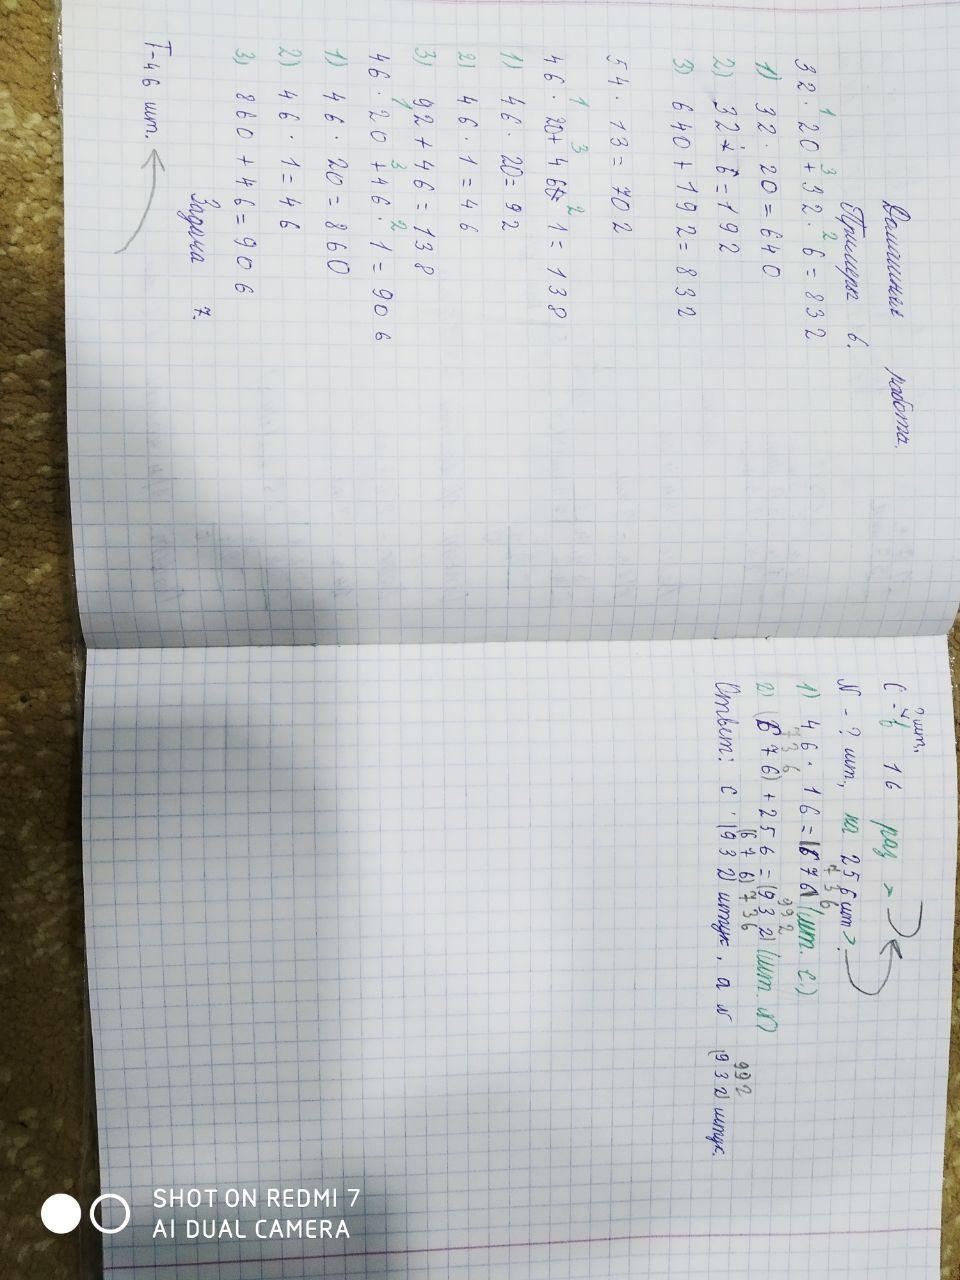 Домашняя работа.
Примеры 6.
1 3 2
32 · 20 + 32 · 6 = 832
1) 32 · 20 = 640
2) 32 · 6 = 192
3) 640 + 192 = 832
54 · 13 = 702
1 3 2
46 · 20 + 46 · 1 = 138
1) 46 · 20 = 92
2) 46 · 1 = 46
3) 92 + 46 = 138
1 3 2
46 · 20 + 46 · 1 = 906
1) 46 · 20 = 860
2) 46 · 1 = 46
3) 860 + 46 = 906
Задача 7.
Т - 46 шт.
? шт,
С - в 16 раз >
N - ? шт, на 256 шт >
736
1) 46 · 16 = (676) (шт. С.)
736 992
2) (676) + 256 = (932) (шт. N)
(676) 736 992
Ответ: С · (932) штук, а N (932) штук.
SHOT ON REDMI 7
AI DUAL CAMERA